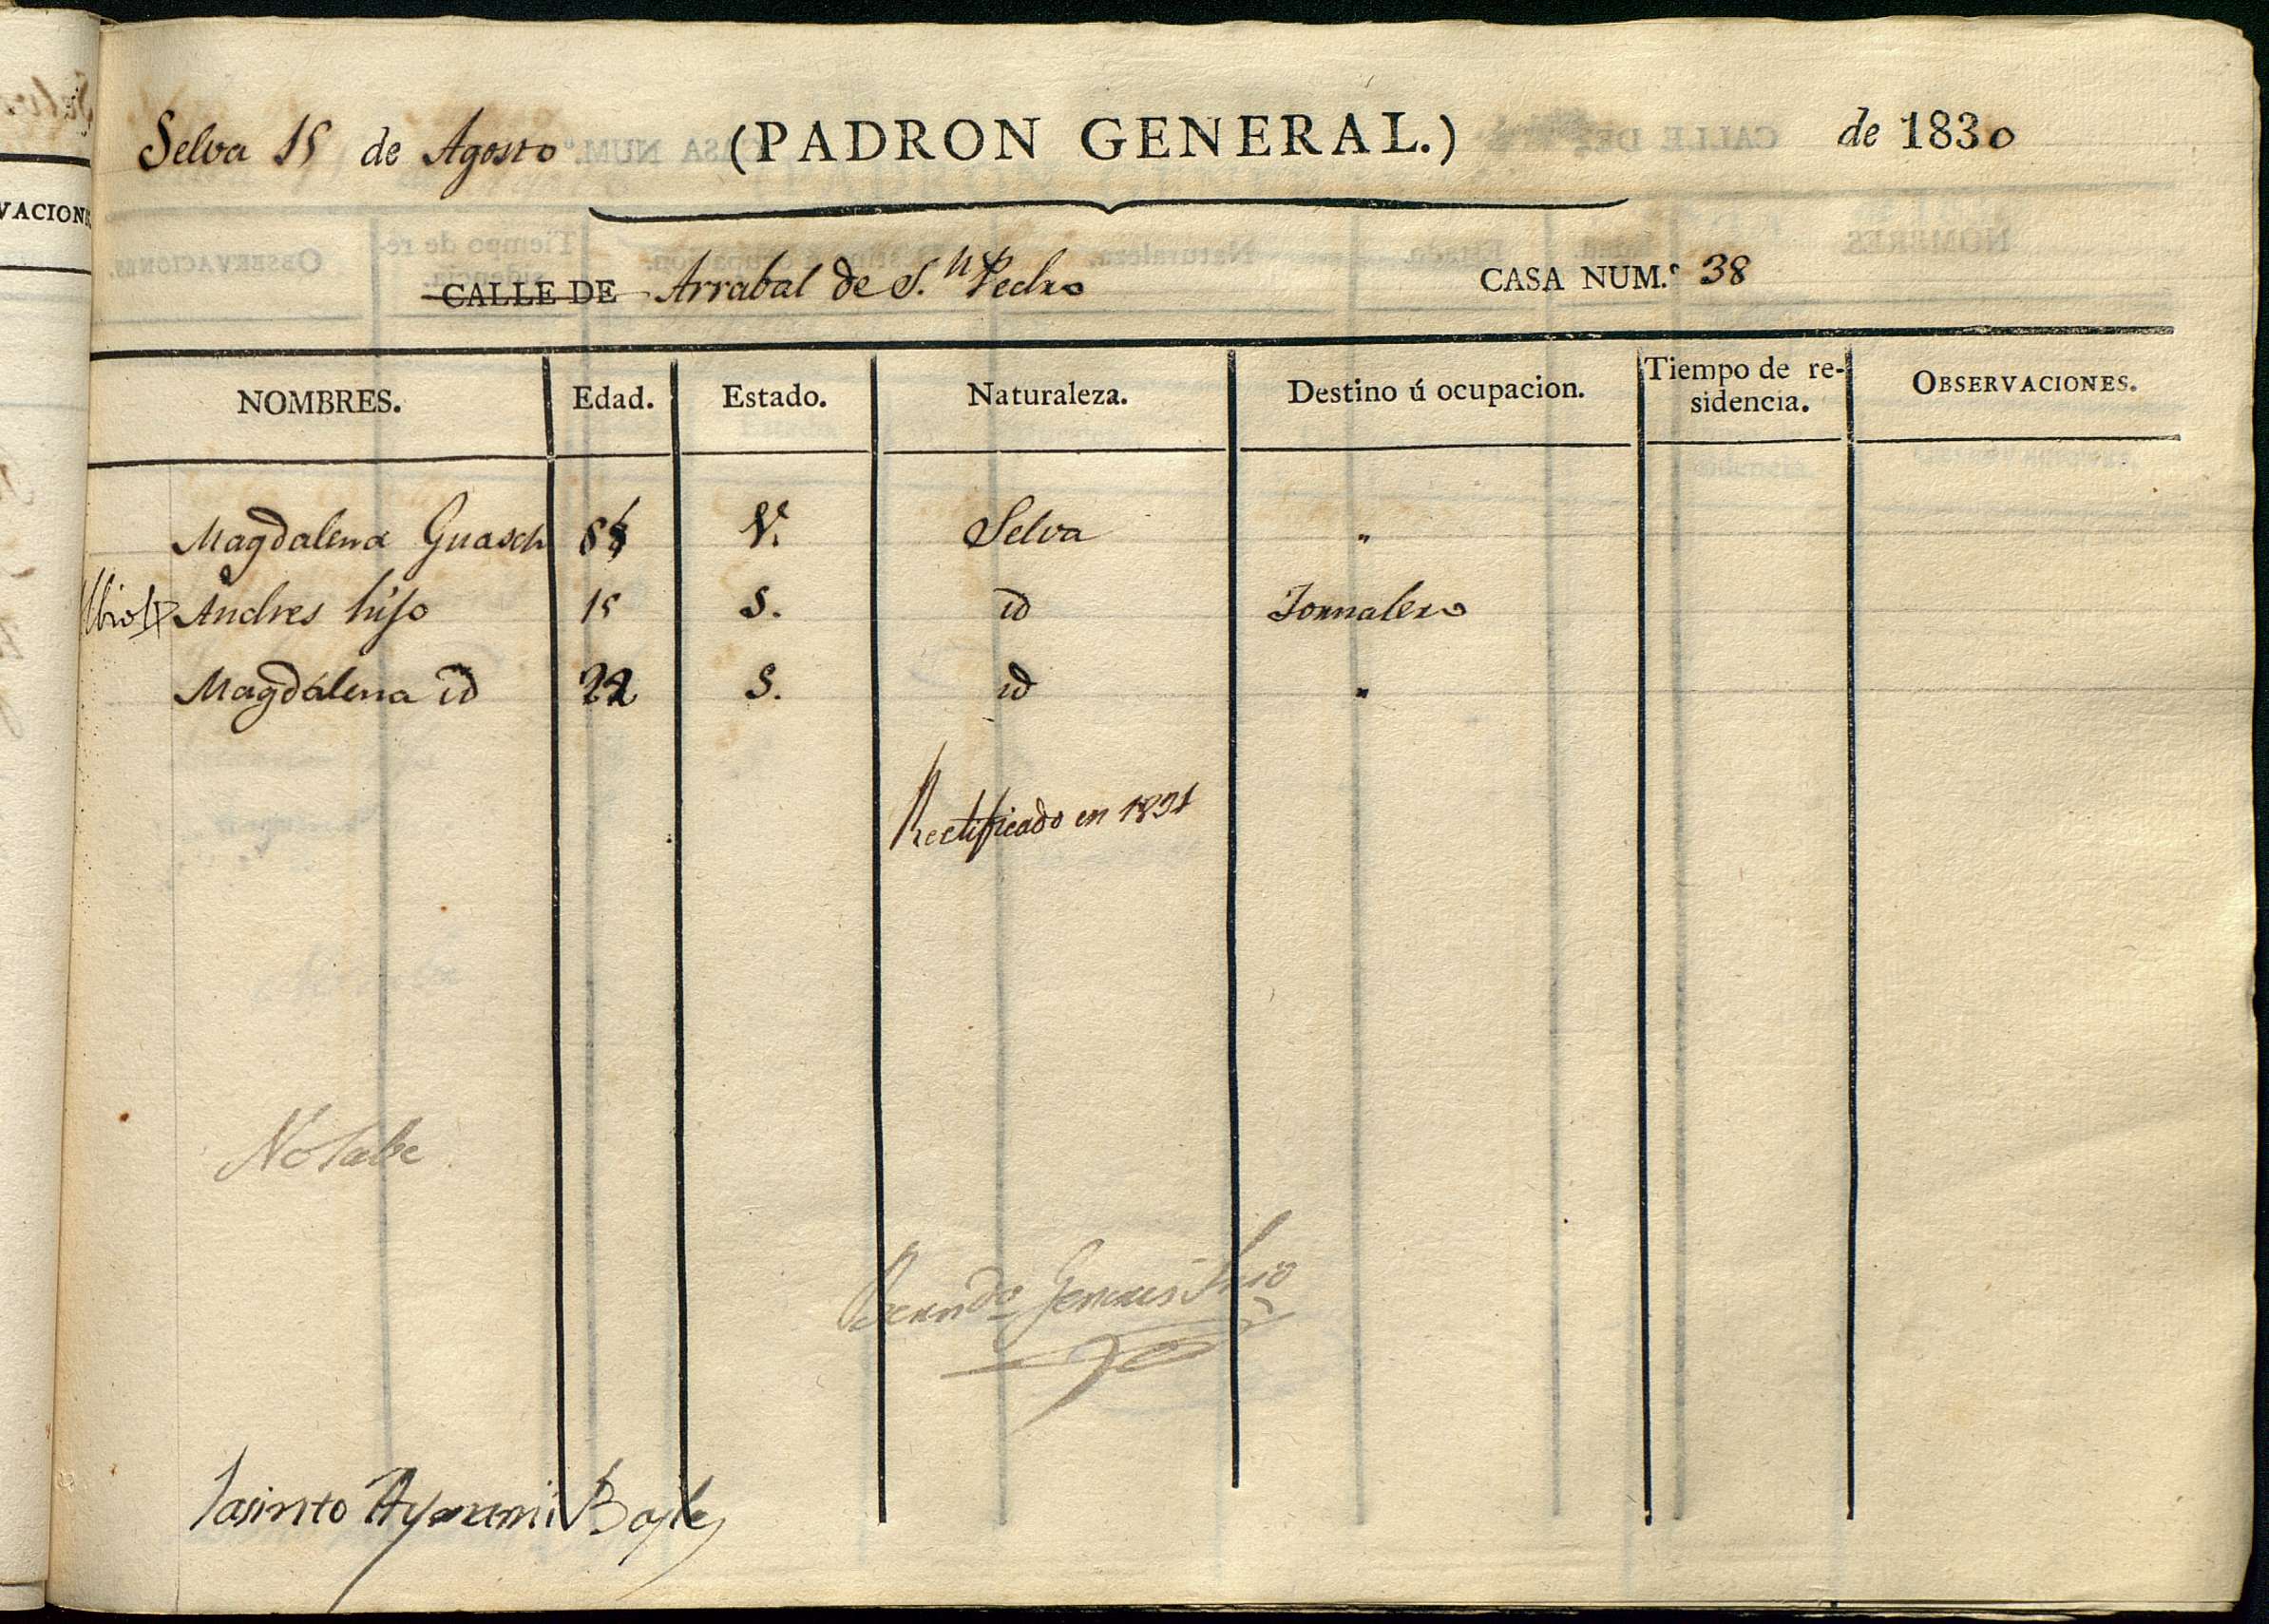 Selva 15 de Agosto (PADRON GENERAL.) de 1830
CALLE DE Arrabal de S.n Pedro CASA NUM.º 38
NOMBRES. Edad. Estado. Naturaleza. Destino ú ocupacion. Tiempo de re-sidencia. OBSERVACIONES.
Magdalena Guasch V.ª Selva "
Andres hijo 15 S. id Jornalero
Magdalena id 22 S. id "
Rectificado en 1831
No sabe
Jasinto Bayle
VACIONE